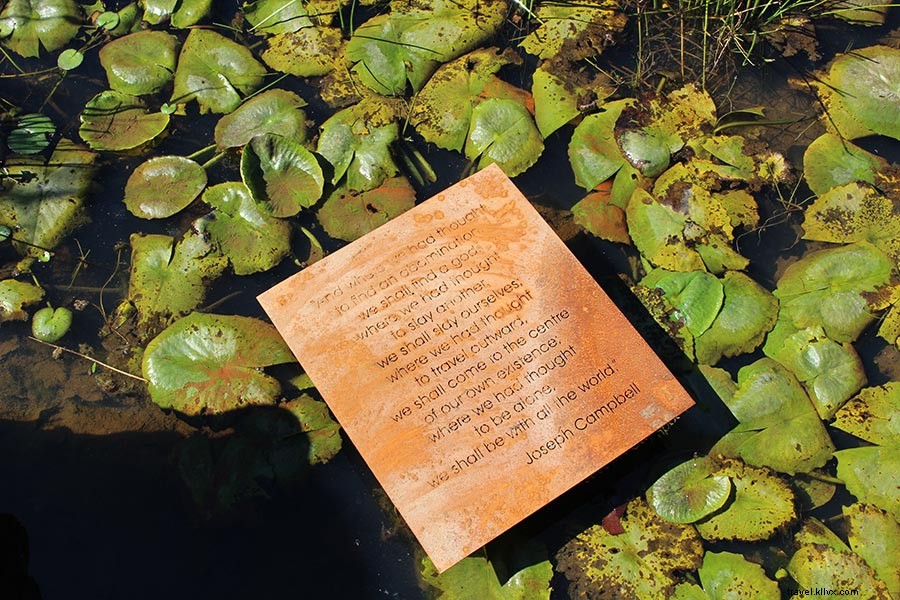 "And where we had thought
to find an abomination
we shall find a god.
where we had thought
to slay another,
we shall slay ourselves.
where we had thought
to travel outward,
we shall come to the centre
of our own existence;
where we had thought
to be alone,
we shall be with all the world."
Joseph Campbell
travel.kllvx.com